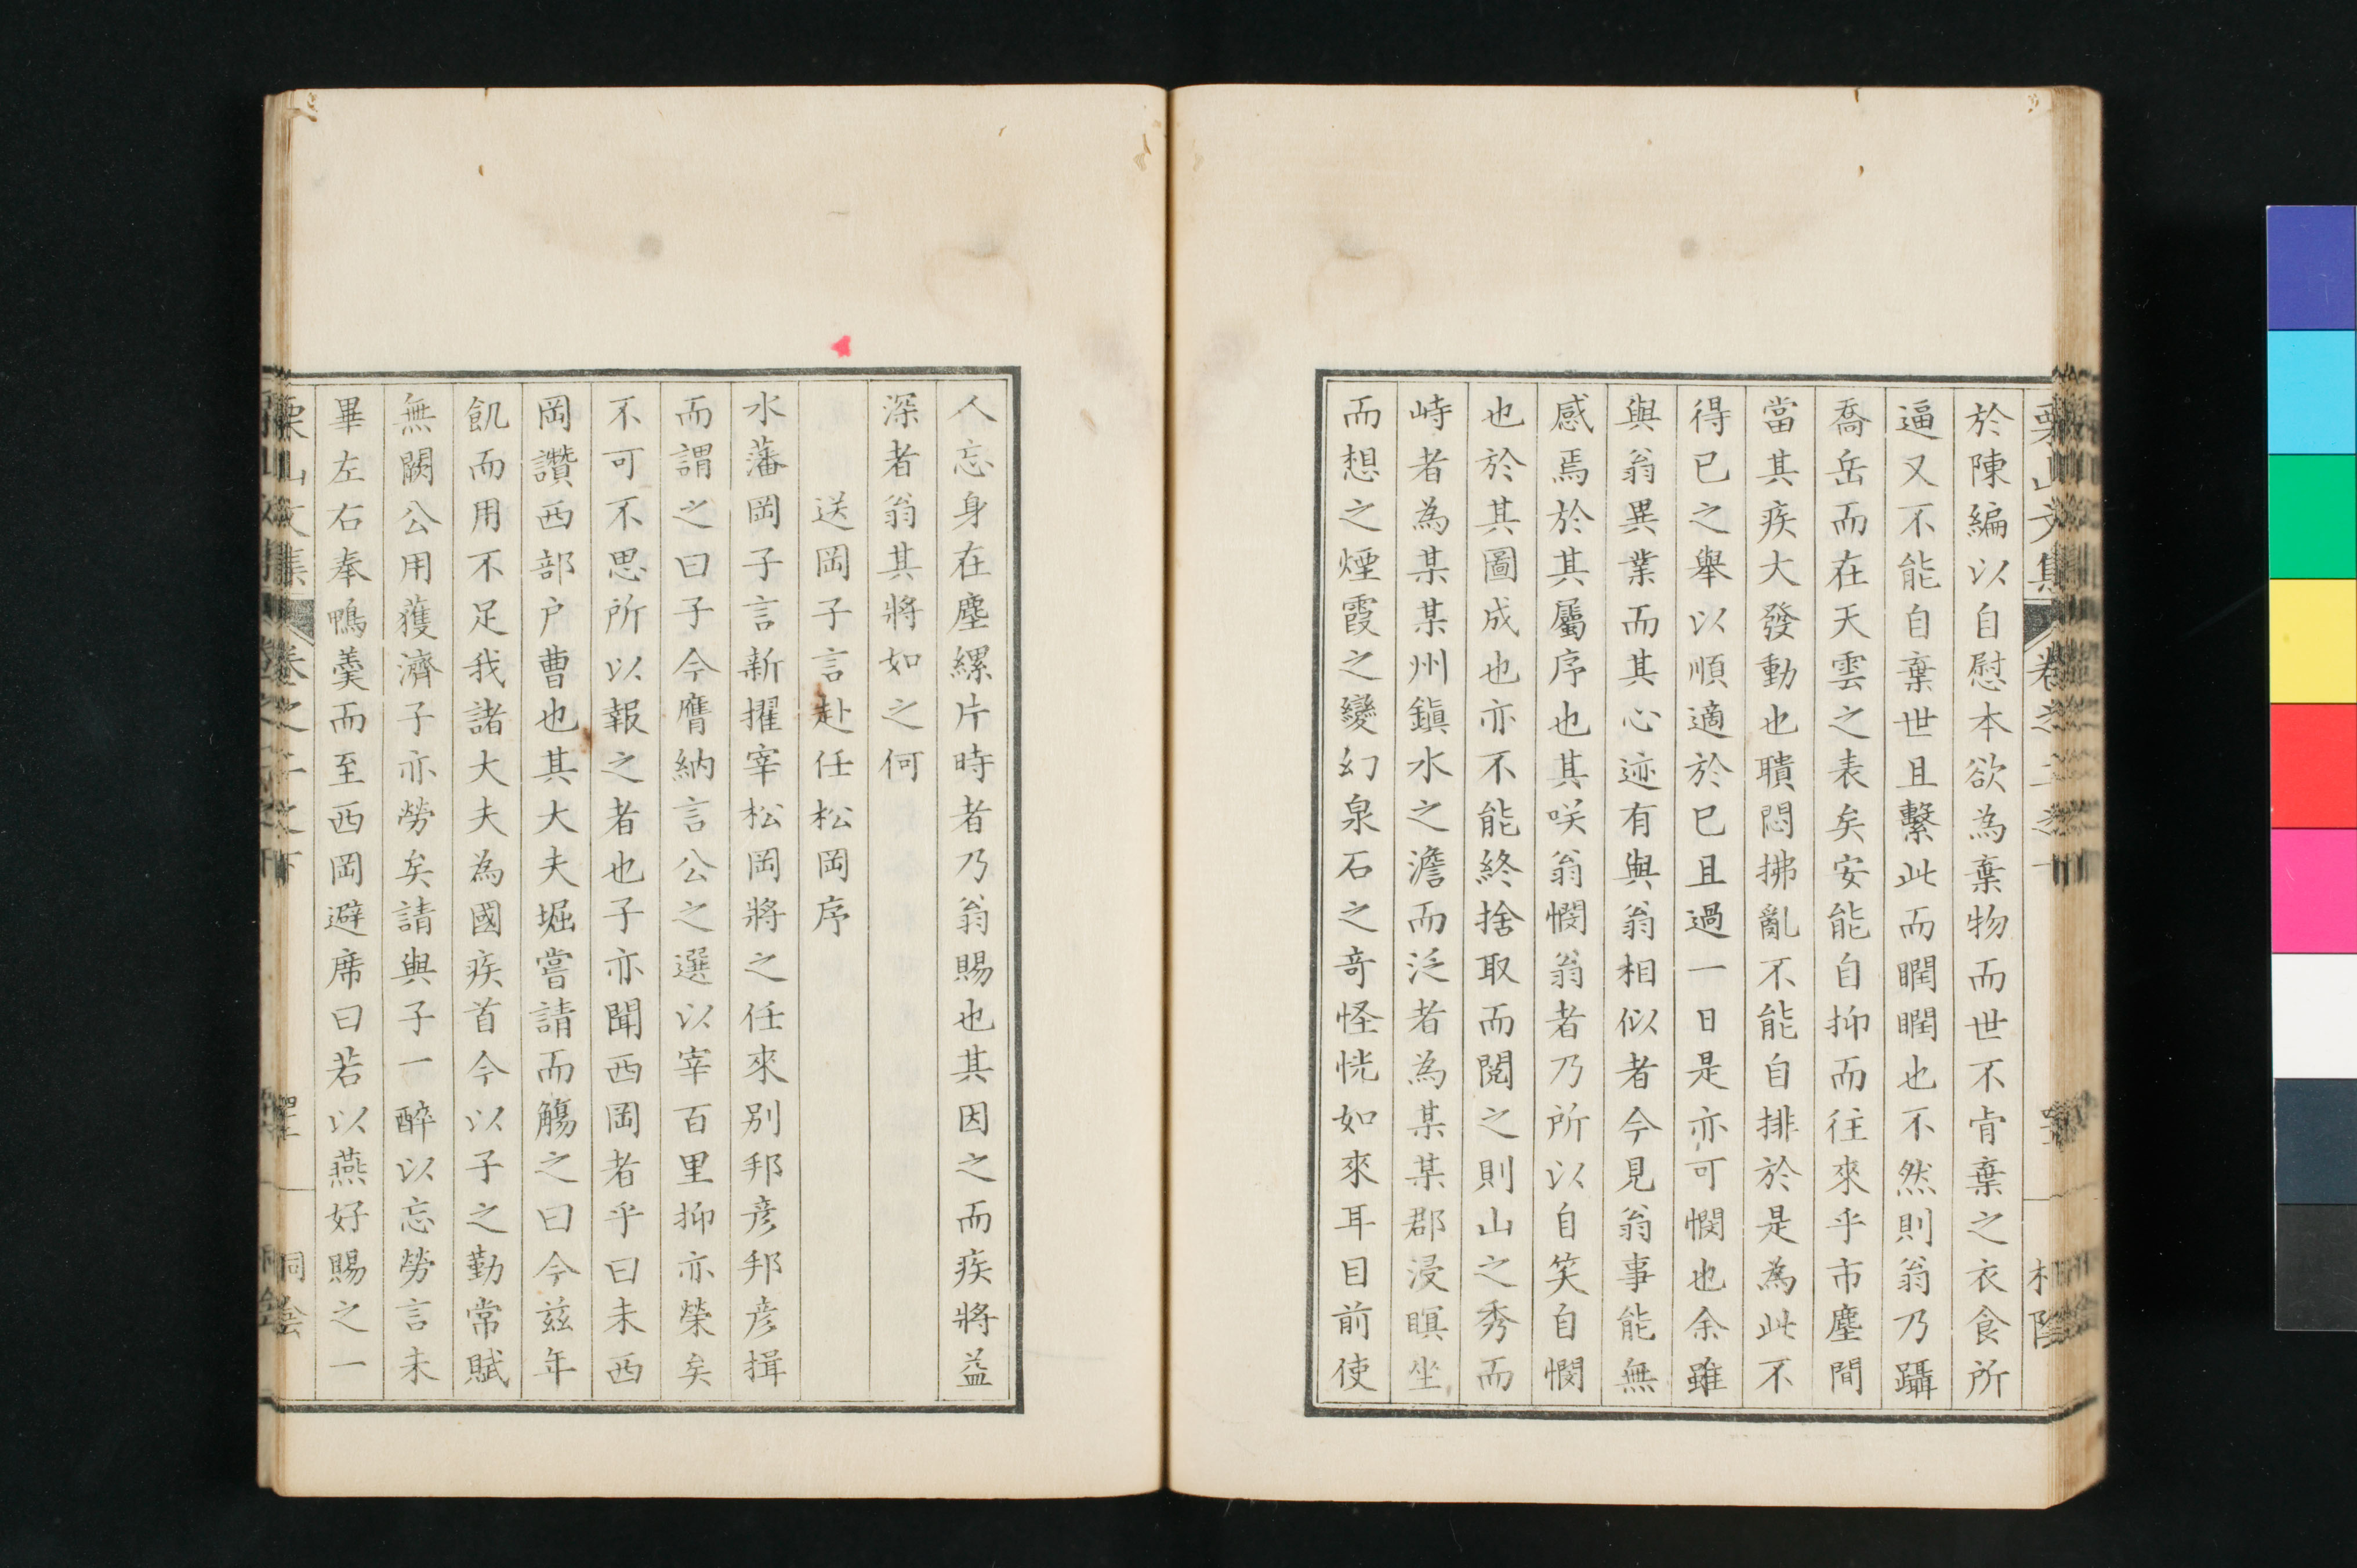 於陳編以自慰本欲為棄物而世不肯棄之衣食所
逼又不能自棄世且繫此而瞤瞤也不然則翁乃躡
喬岳而在天雲之表矣安能自抑而往來乎市塵間
當其疾大發動也瞶悶拂亂不能自排於是為此不
得已之舉以順適於己且過一日是亦可憫也余雖
與翁異業而其心迹有與翁相似者今見翁事能無
感焉於其屬序也其咲翁憫翁者乃所以自笑自憫
也於其圖成也亦不能終捨取而閱之則山之秀而
峙者為某某州鎭水之澹而泛者為某某郡浸瞑坐
而想之煙霞之變幻泉石之奇怪恍如來耳目前使
人忘身在塵縲片時者乃翁賜也其因之而疾將益
深者翁其將如之何
送岡子言赴任松岡序
水藩岡子言新擢宰松岡將之任來別邦彦邦彦揖
而謂之曰子今膺納言公之選以宰百里抑亦榮矣
不可不思所以報之者也子亦聞西岡者乎曰未西
岡讚西部户曹也其大夫堀嘗請而觴之曰今兹年
飢而用不足我諸大夫為國疾首今以子之勤常賦
無闕公用蒦濟子亦勞矣請與子一醉以忘勞言未
畢左右奉鴨羹而至西岡避席曰若以燕好賜之一
栗山文集 卷之二之下